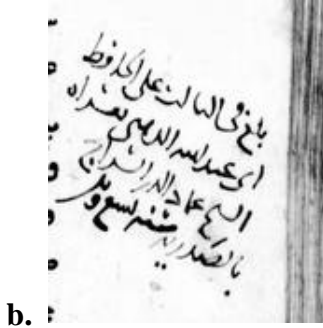 بلغ في الثالث على الحافظ
ابي عبد الله الذهبي بقراءة
الشيخ عماد الدين السراج
بالصدرية سنة تسع و
b.